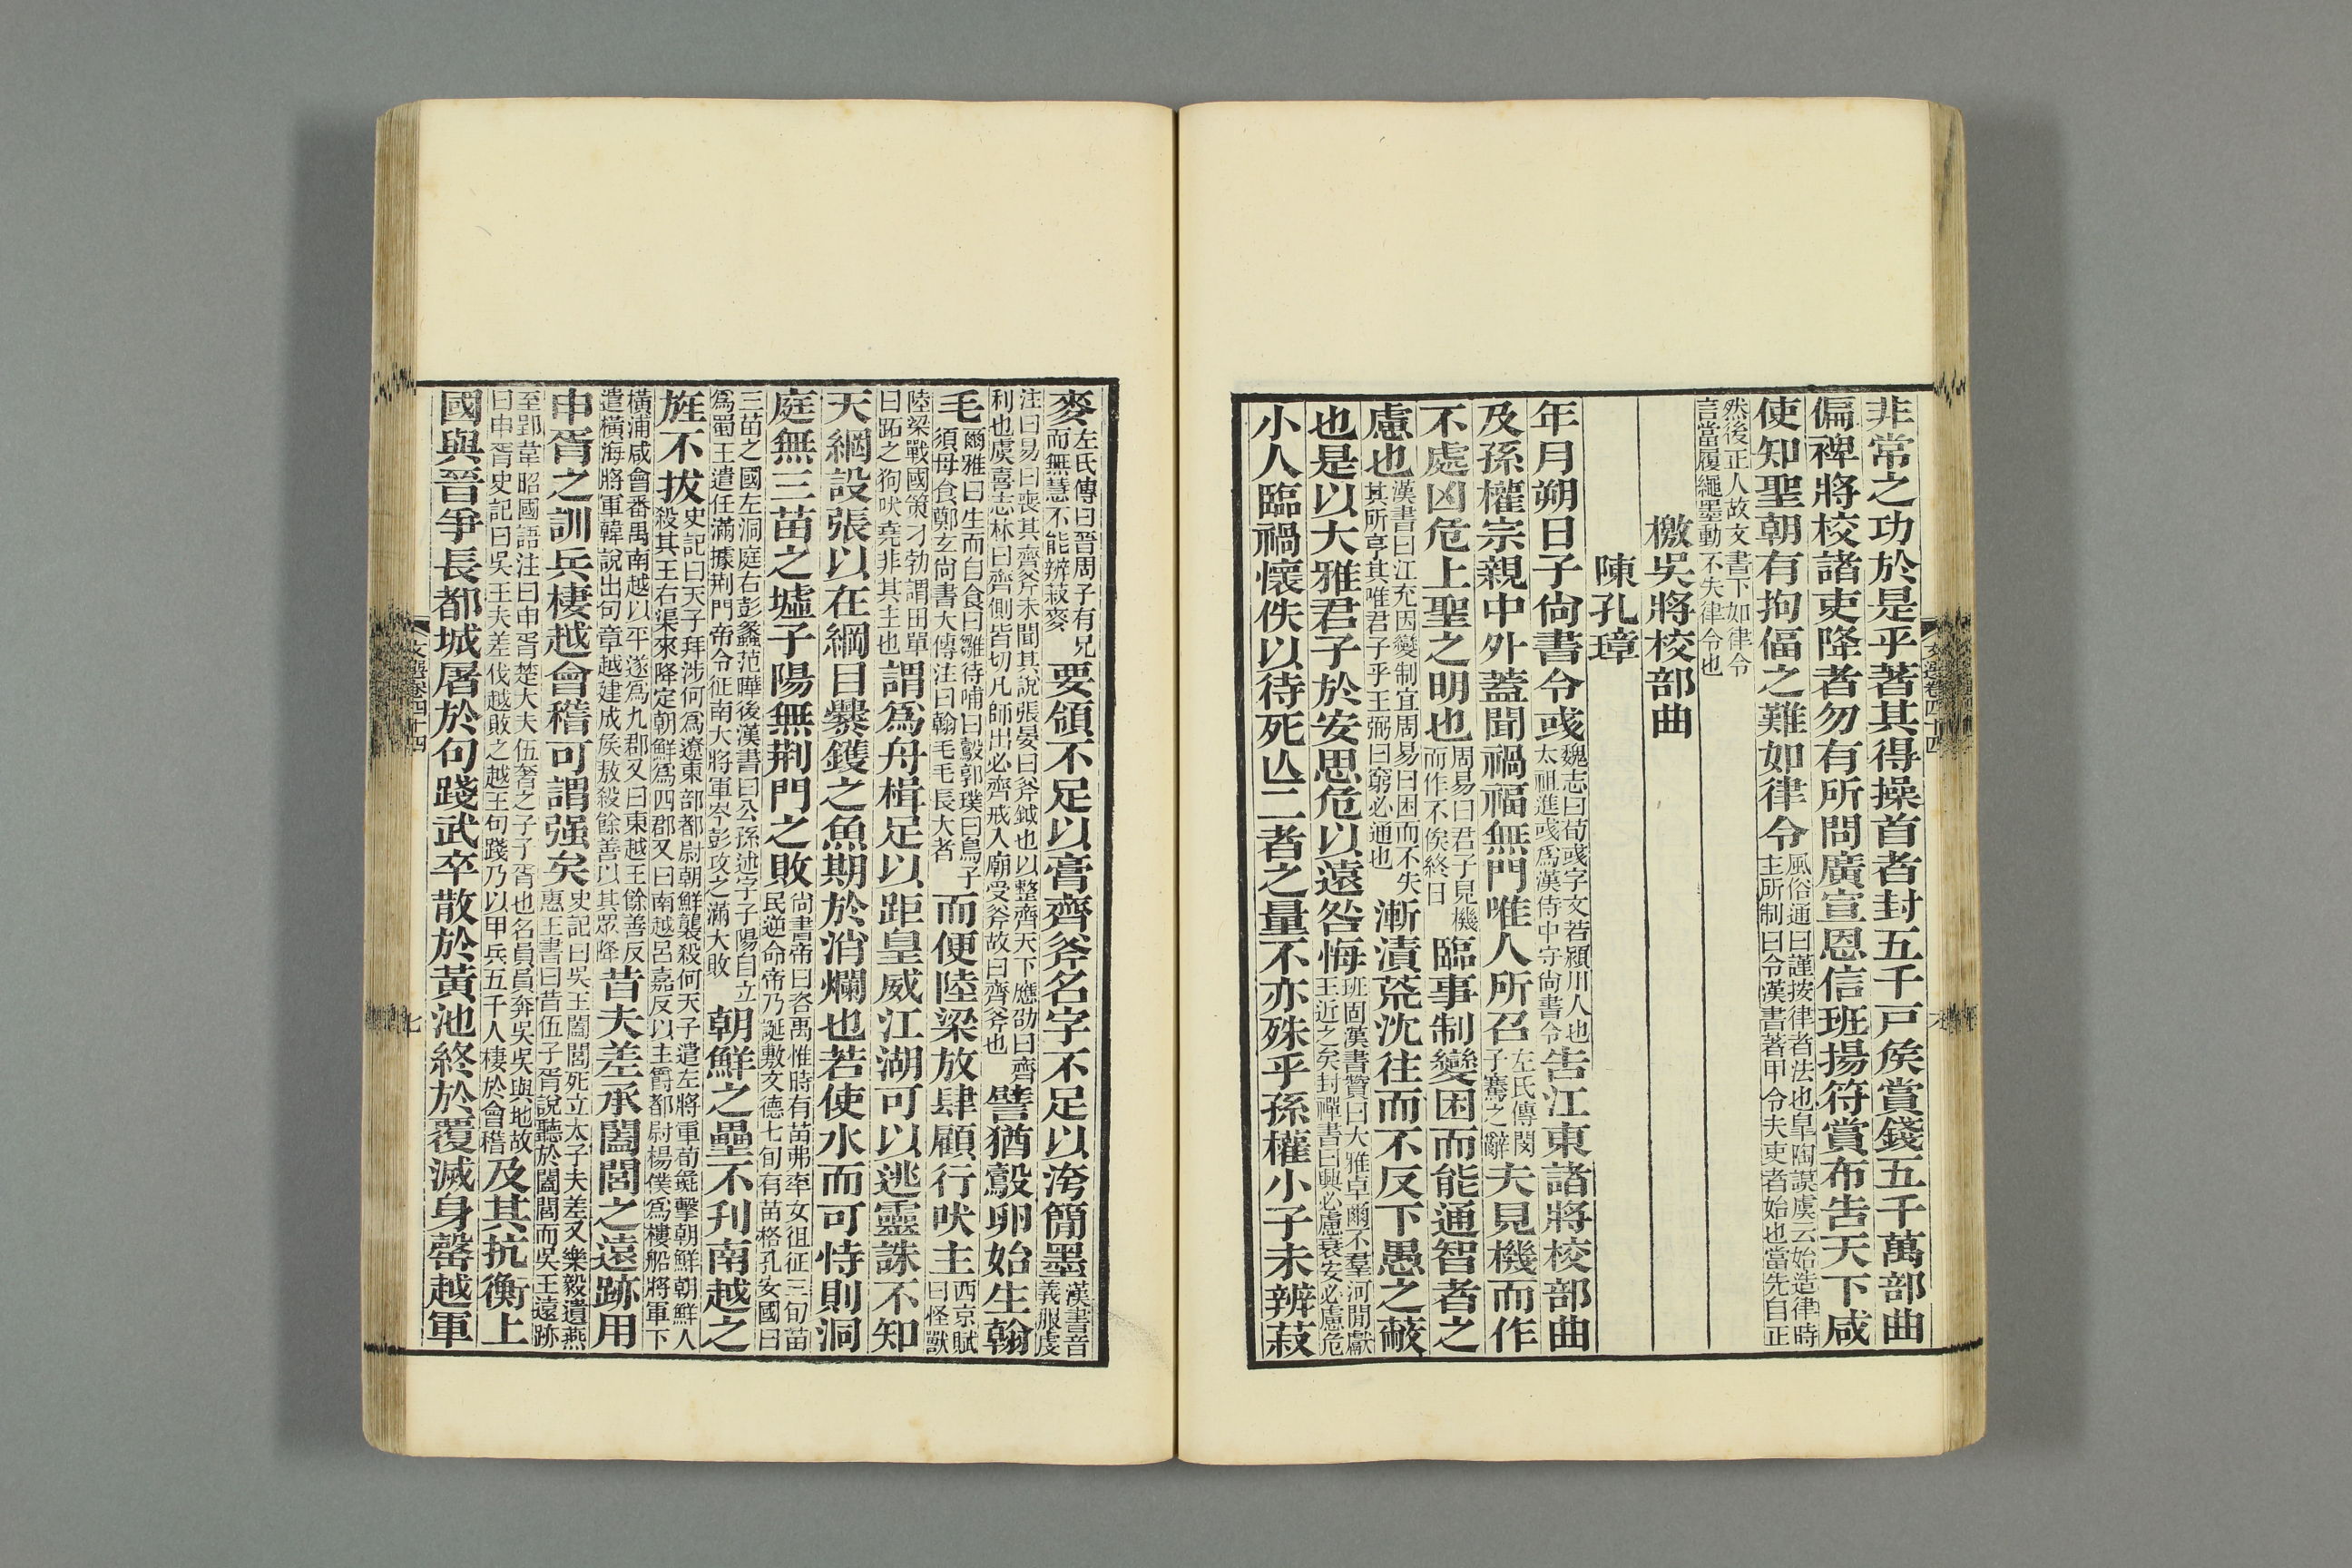 非常之功於是乎著其得操首者封五千戸矦賞錢五千萬部曲
偏裨將校諸吏降者勿有所問廣宣恩信班揚符賞布告天下咸
使知聖朝有拘偪之難如律令風俗通曰謹按律者法也皐陶謨虞云始造律時主所制曰令漢書著甲令夫吏者始也當先自正
然後正人故文書下如律令言當履繩墨動不失律令也
檄吳將校部曲
陳孔璋
年月朔日子尙書令彧魏志曰荀彧字文若潁川人也太祖進彧爲漢侍中守尙書令告江東諸將校部曲
及孫權宗親中外蓋聞禍福無門唯人所召左氏傳閔子騫之辭夫見機而作
不處凶危上聖之明也周易曰君子見機而作不俟終日臨事制變困而能通智者之
慮也漢書曰江充因變制宜周易曰困而不失其所亨其唯君子乎王弼曰窮必通也漸漬荒沈往而不反下愚之蔽
也是以大雅君子於安思危以遠咎悔班固漢書贊曰大雅卓爾不羣河閒獻王近之矣封禪書曰興必慮衰安必慮危
小人臨禍懷佚以待死亾二者之量不亦殊乎孫權小子未辨菽
文選卷四十四
六
麥左氏傳曰晉周子有兄而無慧不能辨菽麥要領不足以膏齊斧名字不足以洿簡墨漢書音義服虔
注曰易曰喪其齊斧未聞其說張晏曰斧鉞也以整齊天下應劭曰齊利也虞喜志林曰齊側皆切凡師出必齊戒入廟受斧故曰齊斧也譬猶鷇卵始生翰
毛爾雅曰生而自食曰雛待哺曰鷇郭璞曰鳥子須母食鄭玄尙書大傳注曰翰毛毛長大者而便陸梁放肆顧行吠主西京賦曰怪獸
陸梁戰國策刁勃謂田單曰跖之狗吠堯非其主也謂爲舟楫足以距皇威江湖可以逃靈誅不知
天網設張以在綱目爨鑊之魚期於消爛也若使水而可恃則洞
庭無三苗之墟子陽無荆門之敗尙書帝曰咨禹惟時有苗弗率女徂征三旬苗民逆命帝乃誕敷文德七旬有苗格孔安國曰
三苗之國左洞庭右彭蠡范曄後漢書曰公孫述字子陽自立爲蜀王遣任滿據荆門帝令征南大將軍岑彭攻之滿大敗朝鮮之壘不刋南越之
旌不拔史記曰天子拜涉何爲遼東部都尉朝鮮襲殺何天子遣左將軍荀彘擊朝鮮朝鮮人殺其王右渠來降定朝鮮爲四郡又曰南越呂嘉反以主爵都尉楊僕爲樓船將軍下
橫浦咸會番禺南越以平遂爲九郡又曰東越王餘善反遣橫海將軍韓說出句章越建成矦敖殺餘善以其眾降昔夫差承闔閭之遠跡用
申胥之訓兵棲越會稽可謂强矣史記曰吳王闔閭死立太子夫差又樂毅遺燕惠王書曰昔伍子胥說聽於闔閭而吳王遠跡
至郢韋昭國語注曰申胥楚大夫伍奢之子子胥也名員員奔吳吳與地故曰申胥史記曰吳王夫差伐越敗之越王句踐乃以甲兵五千人棲於會稽及其抗衡上
國與晉爭長都城屠於句踐武卒散於黃池終於覆滅身罄越軍
文選卷四十四
七